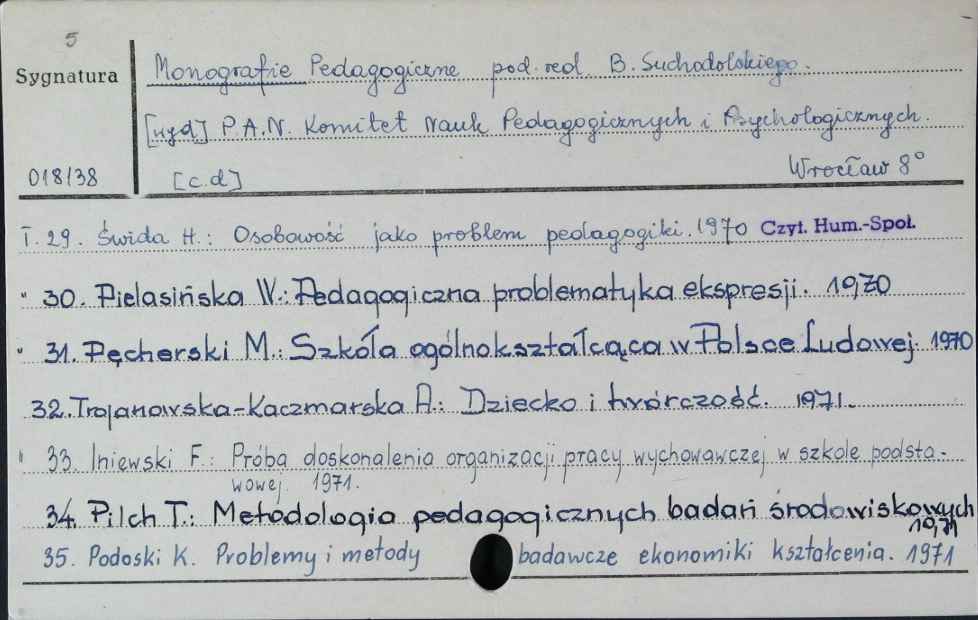 5
Sygnatura
Monografie Pedagogiczne pod. red. B. Suchodolskiego.
[wyd] P.A.N. Komitet Nauk Pedagogicznych i Psychologicznych.
Wrocław 8°
018/38
[c.d]
T. 29. Świda H.: Osobowość jako problem pedagogiki. 1970 Czyt. Hum.-Społ.
" 30. Pielasińska W.: Pedagogiczna problematyka ekspresji. 1970
" 31. Pęcherski M.: Szkóła ogólnokształcąca w Polsce Ludowej. 1970
32. Trojanowska-Kaczmarska A.: Dziecko i twórczość. 1971.
" 33. Iniewski F.: Próba doskonalenia organizacji pracy wychowawczej w szkole podsta-
wowej. 1971.
34. Pilch T.: Metodologia pedagogicznych badań środowiskowych
1971
35. Podoski K. Problemy i metody badawcze ekonomiki kształcenia. 1971